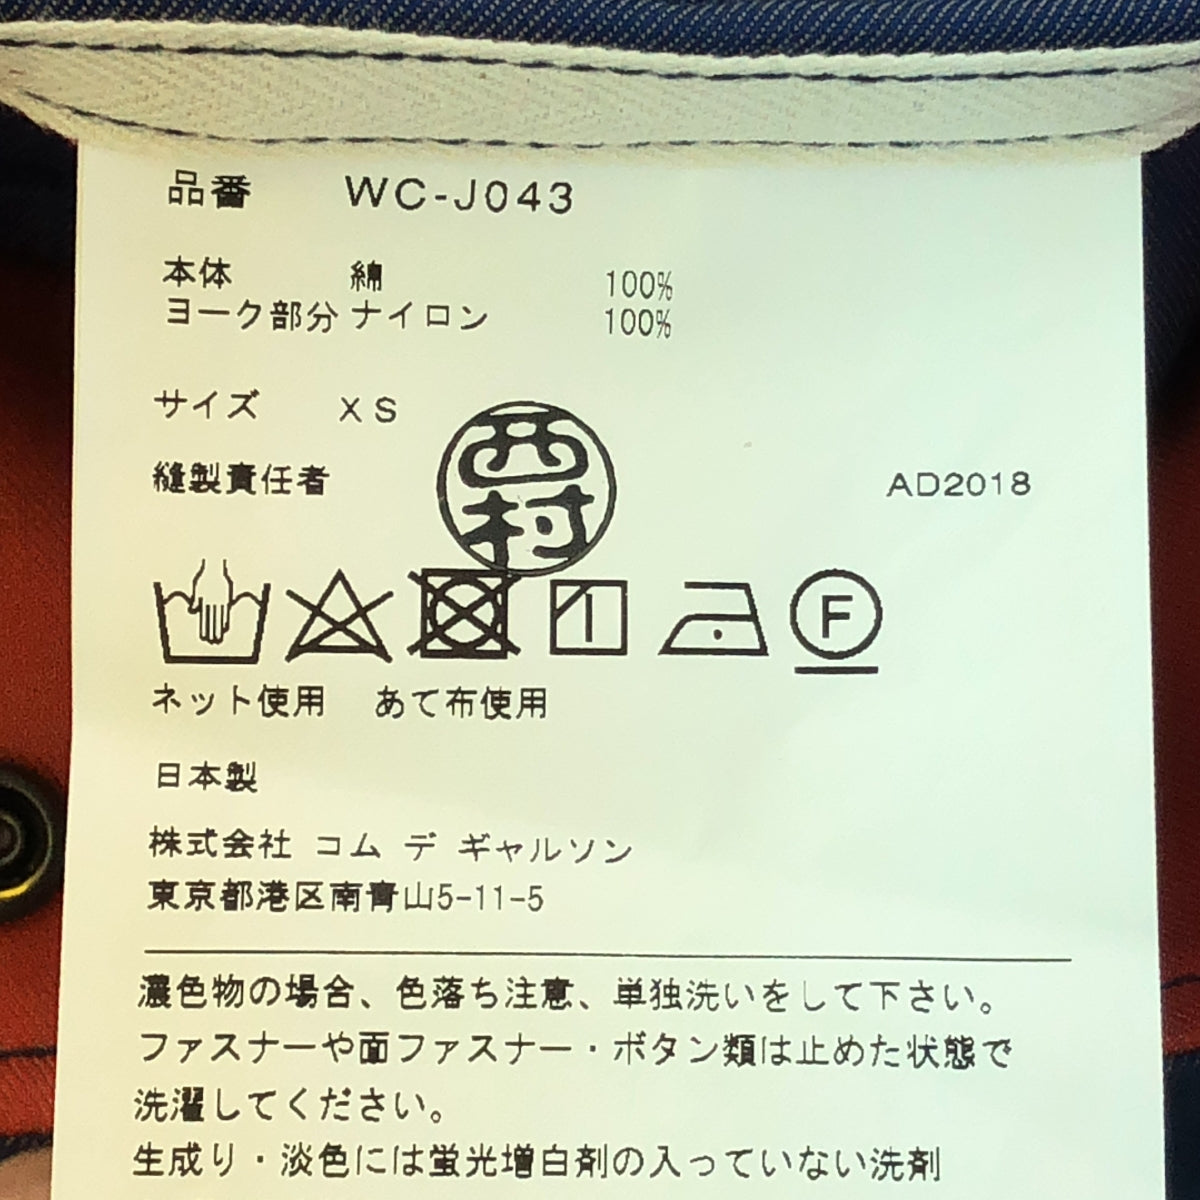 品番 WC-J043
本体 綿 100%
ヨーク部分 ナイロン 100%
サイズ XS
西村
縫製責任者 AD2018
F
ネット使用 あて布使用
日本製
株式会社 コム デ ギャルソン
東京都港区南青山5-11-5
濃色物の場合、色落ち注意、単独洗いをして下さい。
ファスナーや面ファスナー・ボタン類は止めた状態で
洗濯してください。
生成り・淡色には蛍光増白剤の入っていない洗剤